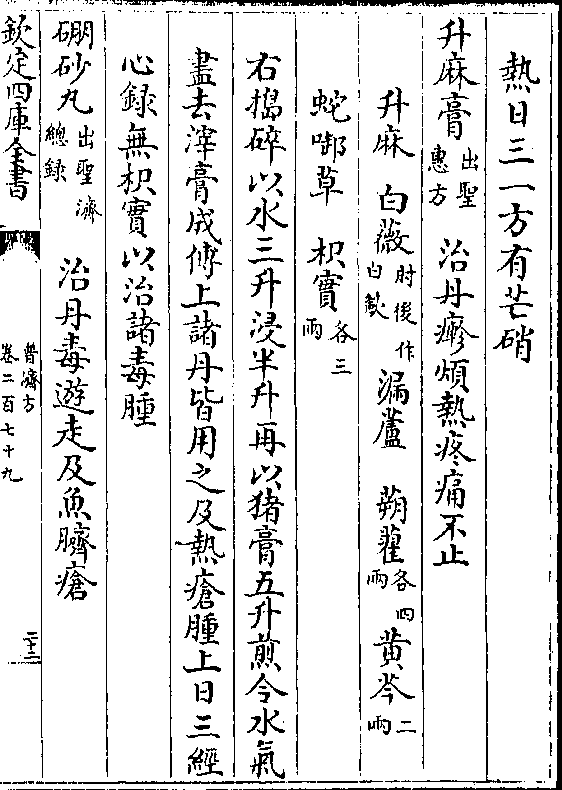 熱日三一方有芒硝
升麻膏出聖惠方 治丹癮煩熱疼痛不止
升麻 白薇肘後作白蘞 漏蘆 蒴藋各四兩 黄芩二兩
蛇啣草 枳實各三兩
右搗碎以水三升浸半升再以猪膏五升煎令水氣
盡去滓膏成傅上諸丹皆用之及熱瘡腫上日三經
心録無枳實以治諸毒腫
硼砂丸出聖濟總録 治丹毒遊走及魚臍瘡
欽定四庫全書
普濟方
卷二百七十九
二十二